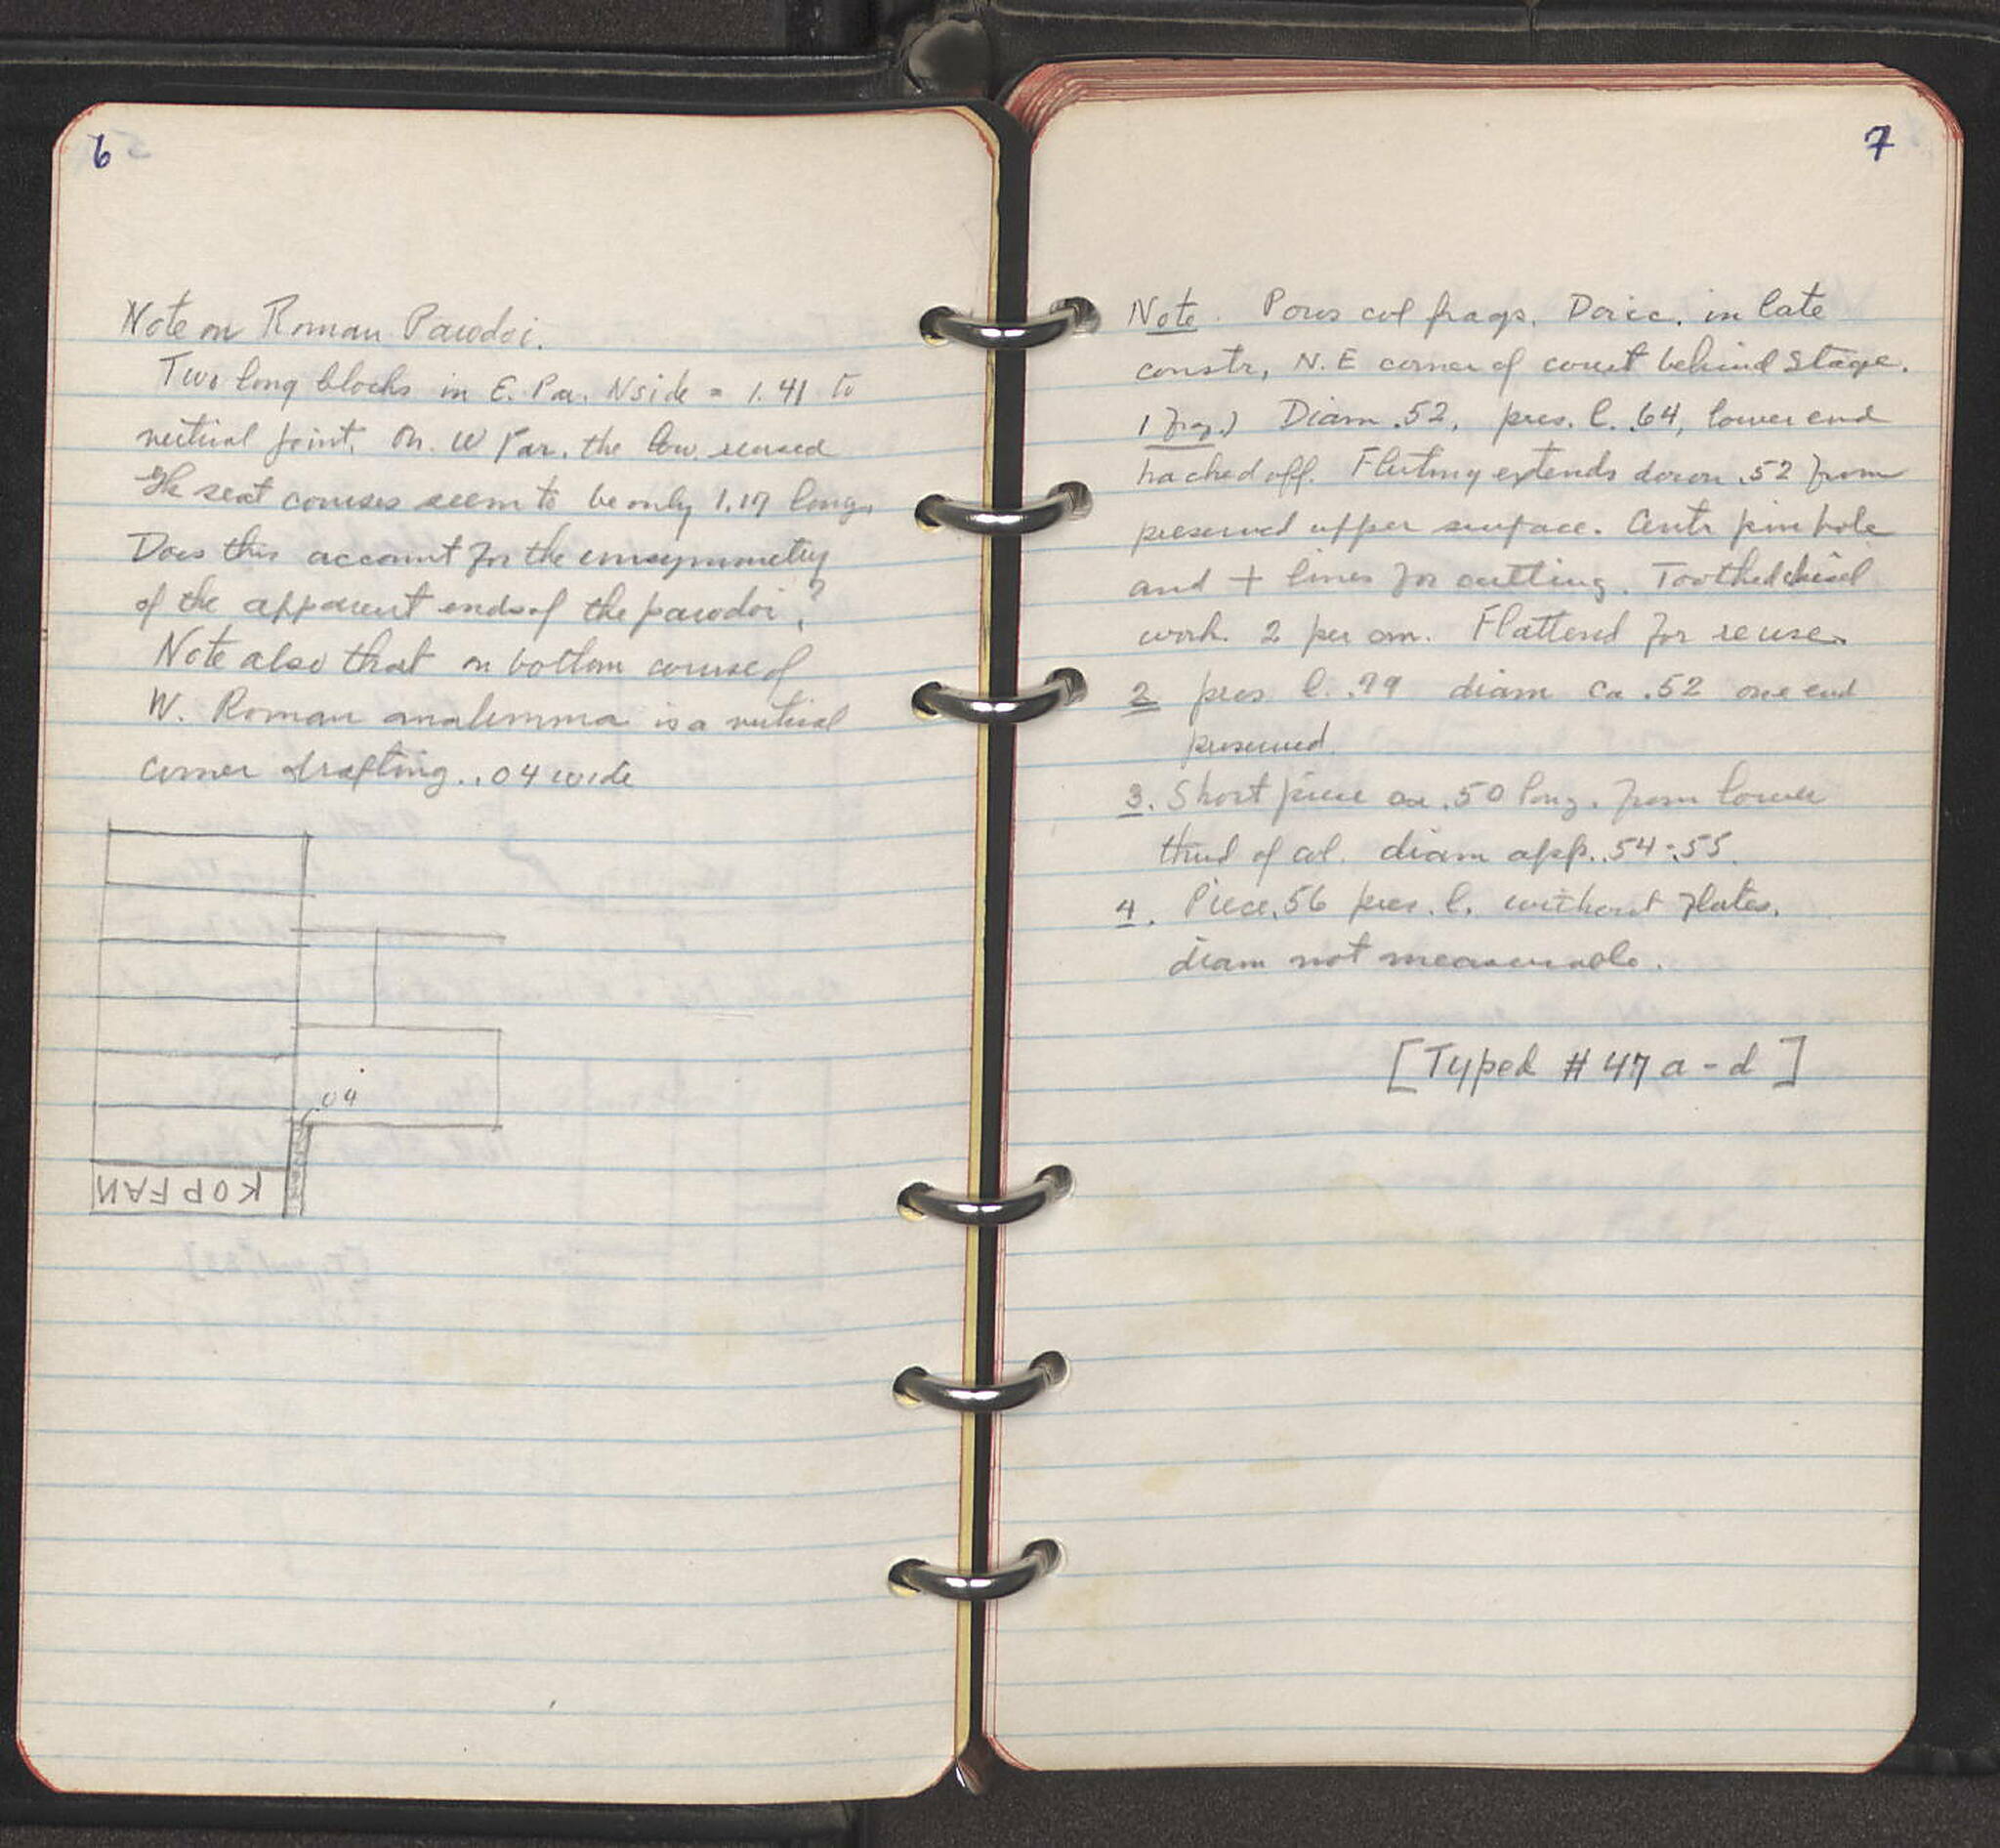 6
Note on Roman Parodoi.
Two long blocks in E. Par. N side = 1.41 to
vertical joint. On W Par. the low. reused
Gk seat courses seem to be only 1.17 long.
Does this account for the unsymmetry
of the apparent ends of the parodoi?
Note also that on bottom course of
W. Roman analemma is a vertical
corner drafting. .04 wide
.04
KOPFAN
7
Note. Poros col frags. Doric. in late
constr, N.E corner of court behind Stage.
1 frag.) Diam .52, pres. l. .64, lower end
hacked off. Fluting extends down .52 from
preserved upper surface. Centr pin hole
and + lines for cutting. Toothed chisel
work. 2 per cm. Flattened for reuse.
2 pres l. .79 diam ca .52 one end
preserved.
3. Short piece ca .50 long. from lower
third of col. diam app. .54-.55.
4. Piece .56 pres. l. without flutes.
diam not measurable.
[Typed # 47 a-d]